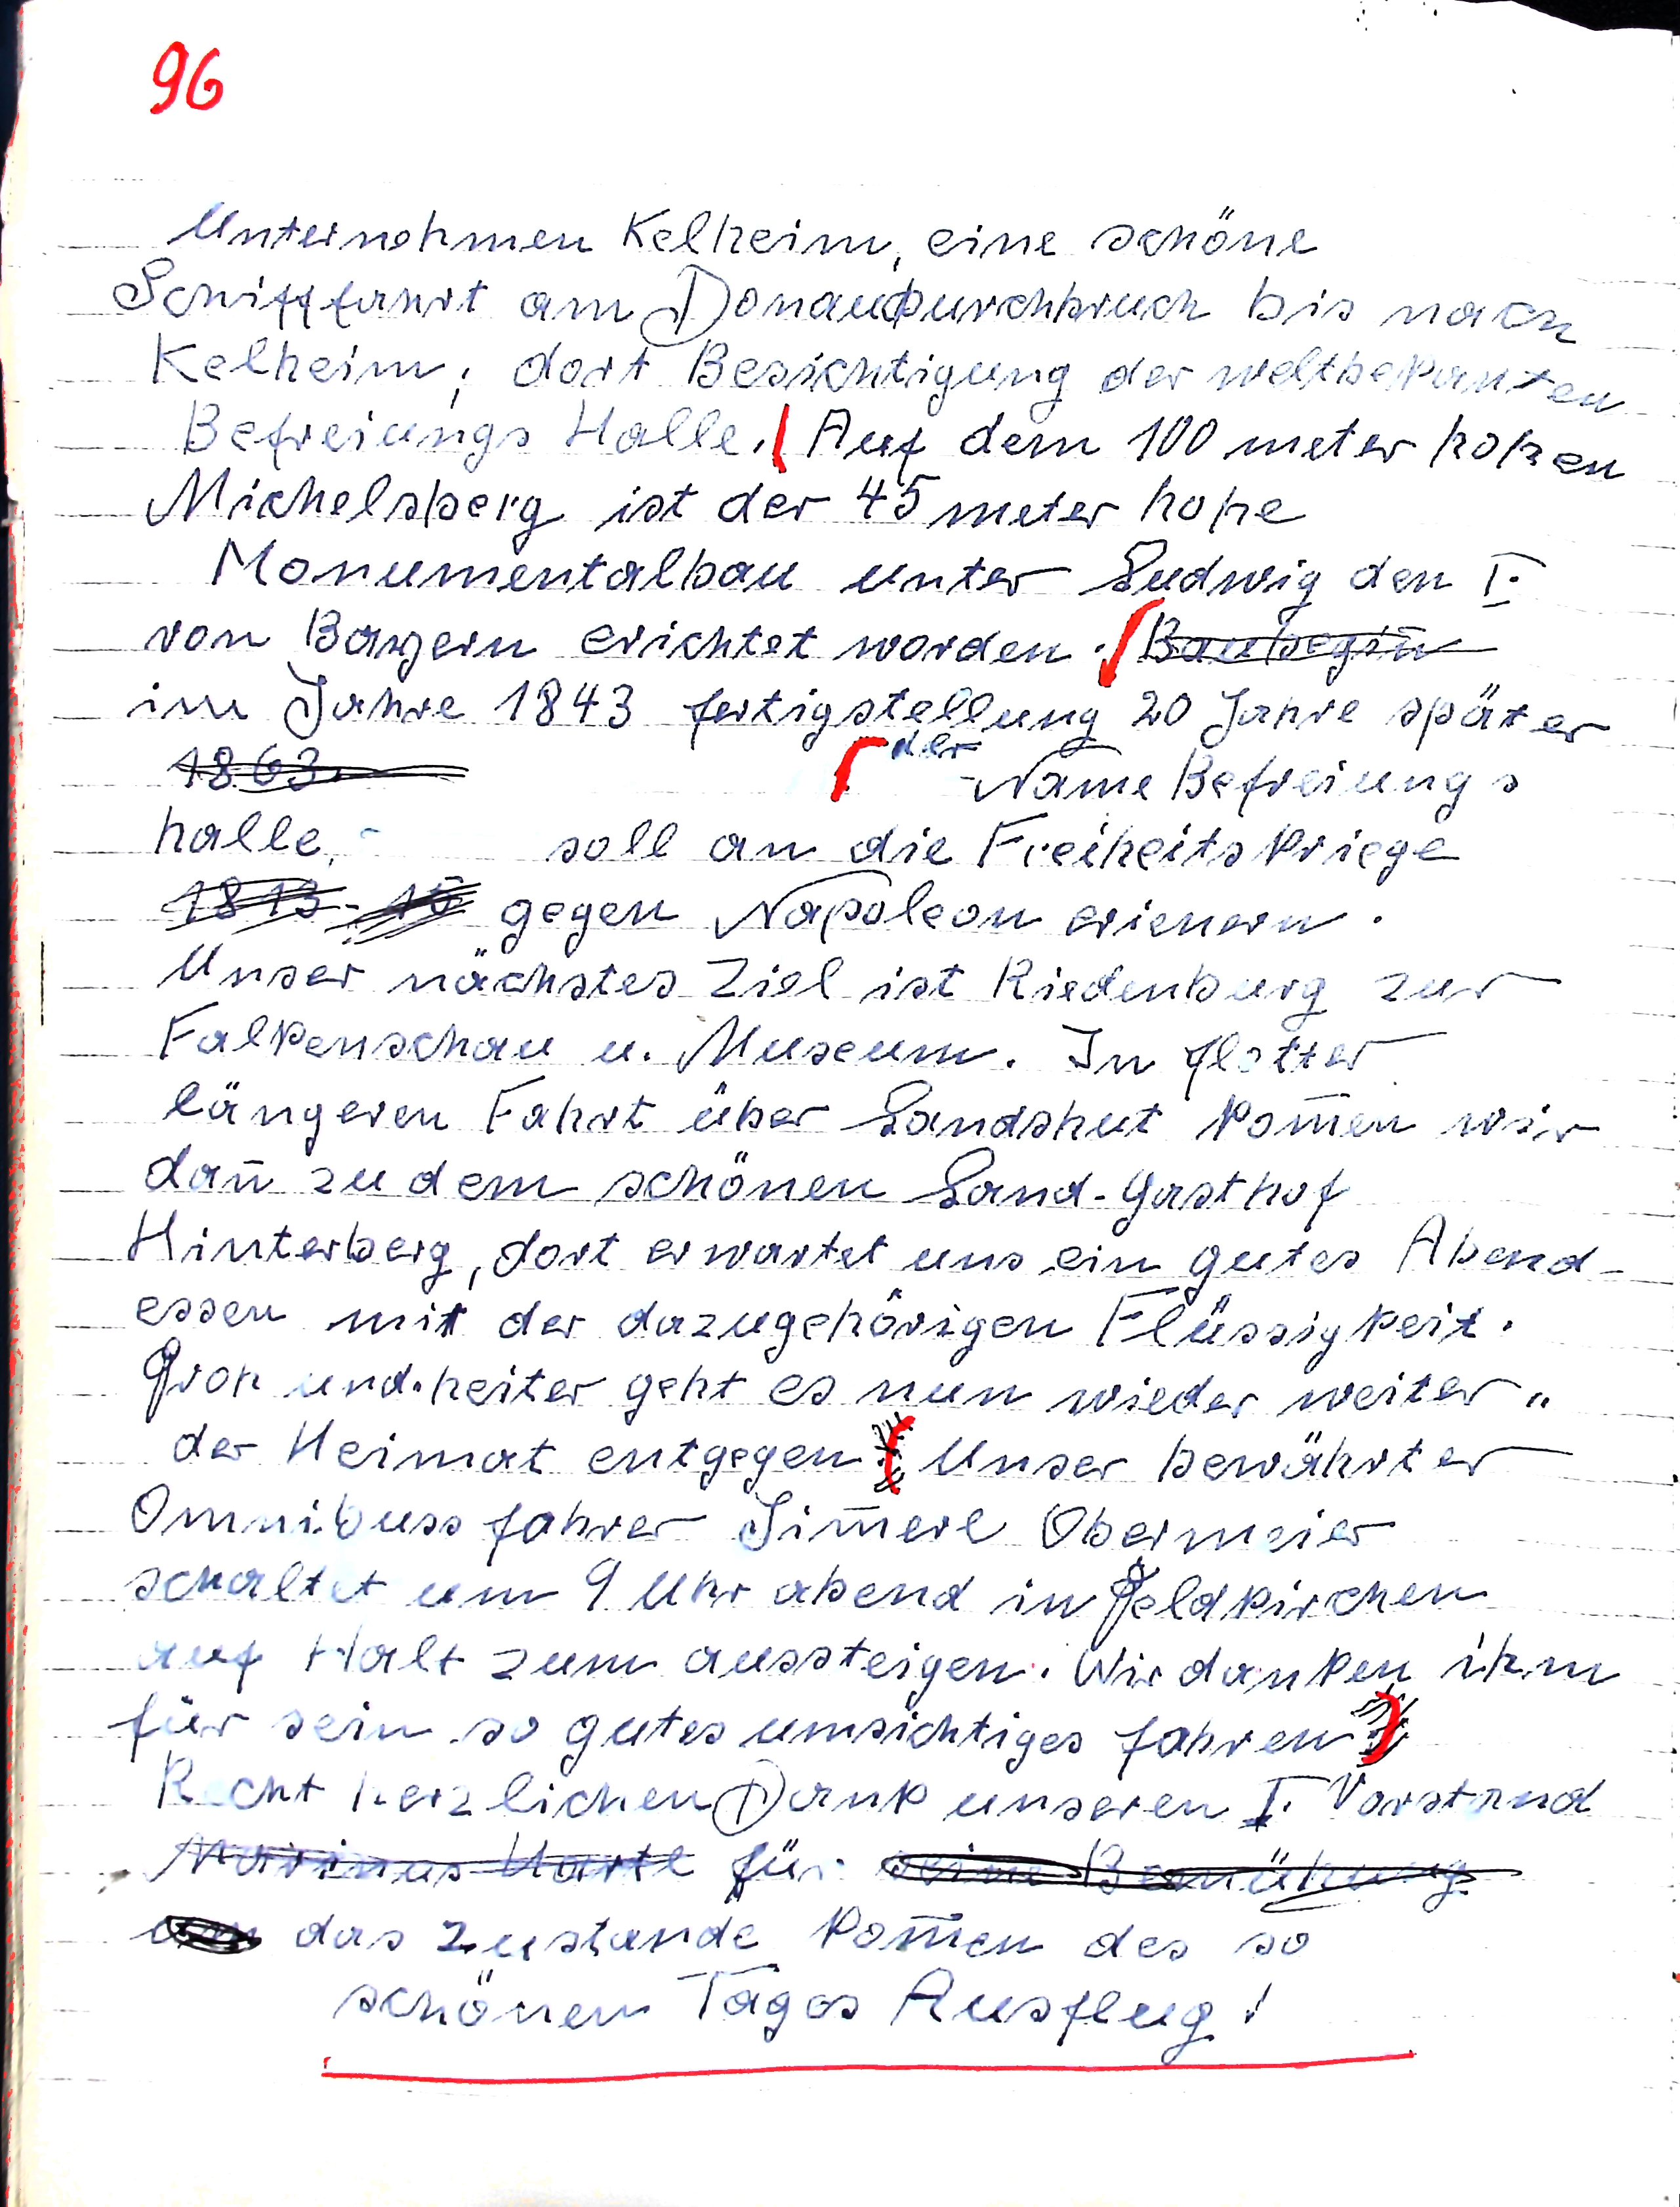 96
Unternehmen Kelheim, eine schöne
Schifffahrt am Donaudurchbruch bis nach
Kelheim; dort Besichtigung der weltbekanten
Befreiungs Halle. Auf dem 100 meter hohen
Michelsberg ist der 45 meter hohe
Monumentalbau unter Ludwig den I.
von Bayern erichtet worden. Baubegin̄
im Jahre 1843 fertigstellung 20 Jahre später
1863 der Name Befreiungs
halle, soll an die Freiheitskriege
1813-15 gegen Napoleon erienern.
Unser nächstes Ziel ist Riedenburg zur
Falkenschau u. Museum. In flotter
längeren Fahrt über Landshut kom̄en wir
dan̄ zu dem schönen Land-Gasthof
Hinterberg, dort erwartet uns ein gutes Abend-
essen mit der dazugehörigen Flüssigkeit.
Froh und heiter geht es nun wieder weiter"
der Heimat entgegen Unser bewährter
Omnibuss fahrer Sim̄erl Obermeier
schaltet um 9 Uhr abend in Feldkirchen
auf Halt zum aussteigen. Wir danken ihm
für sein so gutes umsichtiges fahren
Recht herzlichen Dank unseren I. Vorstand
Marinus Hartl für seine Bemühung
das zustande kom̄en des so
schönen Tages Ausflug!